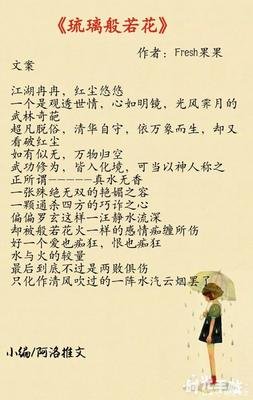 《琉璃般若花》
作者：Fresh果果
文案
江湖冉冉，红尘悠悠
一个是观透世情，心如明镜，光风霁月的
武林奇葩
超凡脱俗，清华自守，依万象而生，却又
看破红尘
如有似无，万物归空
武功修为，皆入化境，可当以神人称之
正所谓-----真水无香
一张殊绝无双的艳媚之容
一颗通杀四方的巧诈之心
偏偏罗玄这样一汪静水流深
却被般若花火一样的感情痴缠所伤
好一个爱也痴狂，恨也痴狂
水与火的较量
最后到底不过是两败俱伤
只化作清风吹过的一阵水汽云烟罢了
小编/阿洛推文